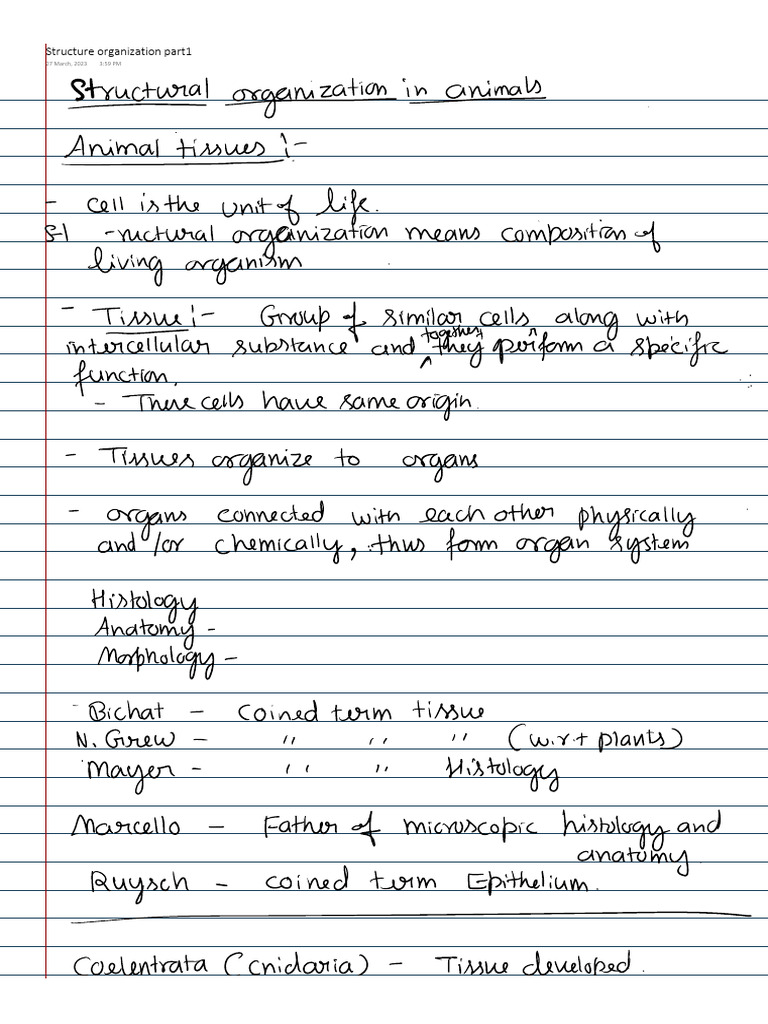 Structure organization part1
27 March, 2023 1:59 PM
Structural organization in animals
Animal tissues :-
- cell is the unit of life.
S-1 -ructural organization means composition of
living organism
- Tissue :- Group of similar cells along with
intercellular substance and together they perform a specific
function.
- These cells have same origin.
- Tissues organize to organs
- organs connected with each other physically
and /or chemically, thus form organ system
Histology
Anatomy -
Morphology -
Bichat - coined term tissue
N. Grew - " " " (w.r.t plants)
Mayer - " " Histology
Marcello - Father of microscopic histology and
anatomy
Ruysch - coined term Epithelium.
Coelentrata (Cnidaria) - Tissue developed.